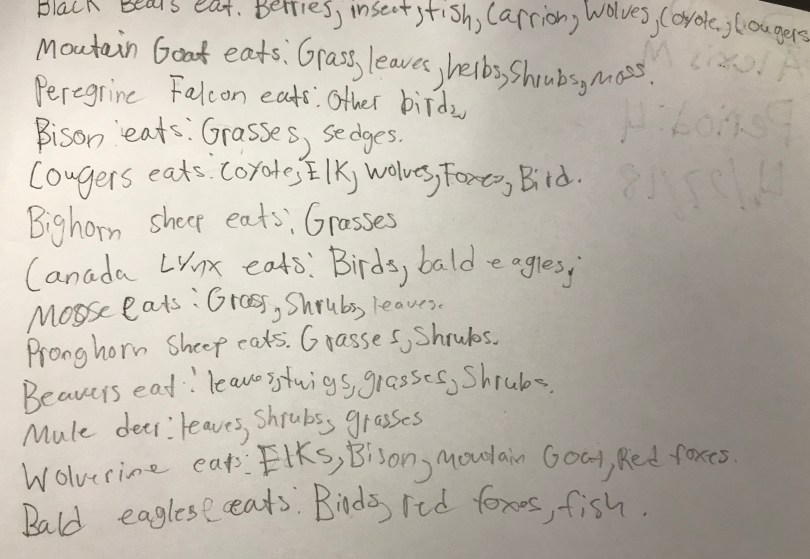 Black Bears eat. Berries, insect, fish, Carrion, Wolves, Coyote, Cougers
Moutain Goat eats: Grass, leaves, herbs, Shrubs, moss.
Peregrine Falcon eats: Other birds
Bison eats: Grasses, sedges.
Cougers eats: Coyote, Elk, Wolves, Foxes, Bird.
Bighorn sheep eats: Grasses
Canada Lynx eats: Birds, bald eagles,
Moose eats: Grass, Shrubs, leaves.
Pronghorn Sheep eats. Grasses, Shrubs.
Beavers eat: leaves, twigs, grasses, Shrubs.
Mule deer: leaves, Shrubs, grasses
Wolverine eats: Elks, Bison, moutain Goat, Red foxes.
Bald eagles eats: Birds, red foxes, fish.
Alexis M
Period: 4
4/27/18